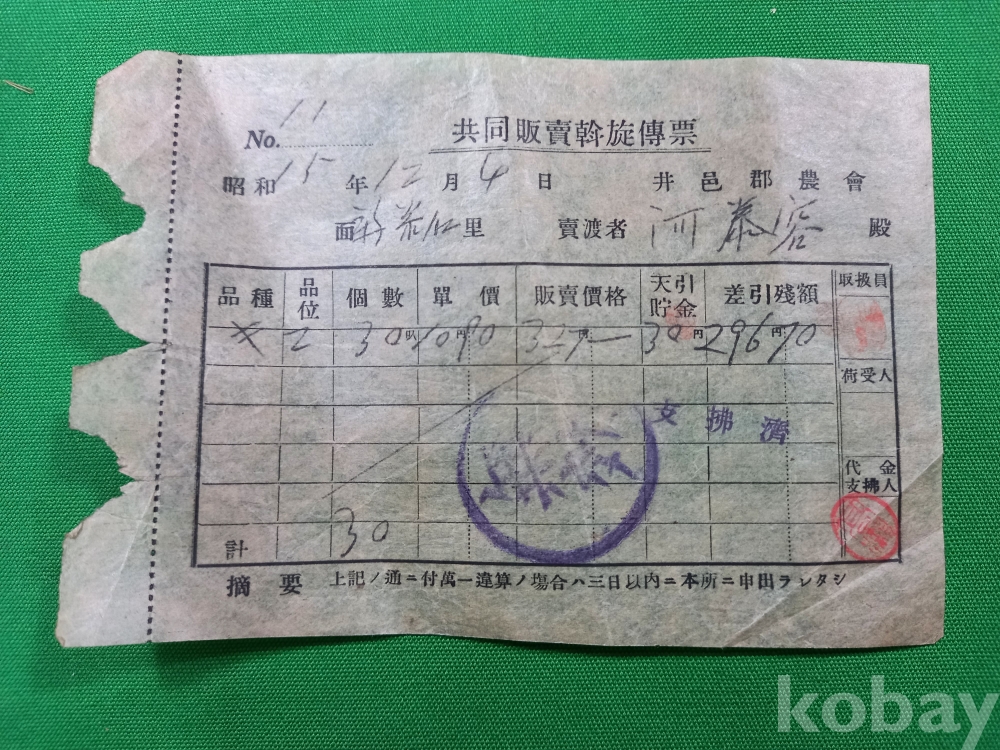 No. 11
共同販賣斡旋傳票
昭和15年12月4日 井邑郡農會
面 里 賣渡者 河 殿
品種 品位 個數 單價 販賣價格 天引貯金 差引殘額 取扱員
2 30叺 1090円 327円— 30円 296円70
荷受人
支拂濟
代金支拂人
計 30
摘要 上記ノ通ニ付萬一違算ノ場合ハ三日以内ニ本所ニ申出ラレタシ
kobay